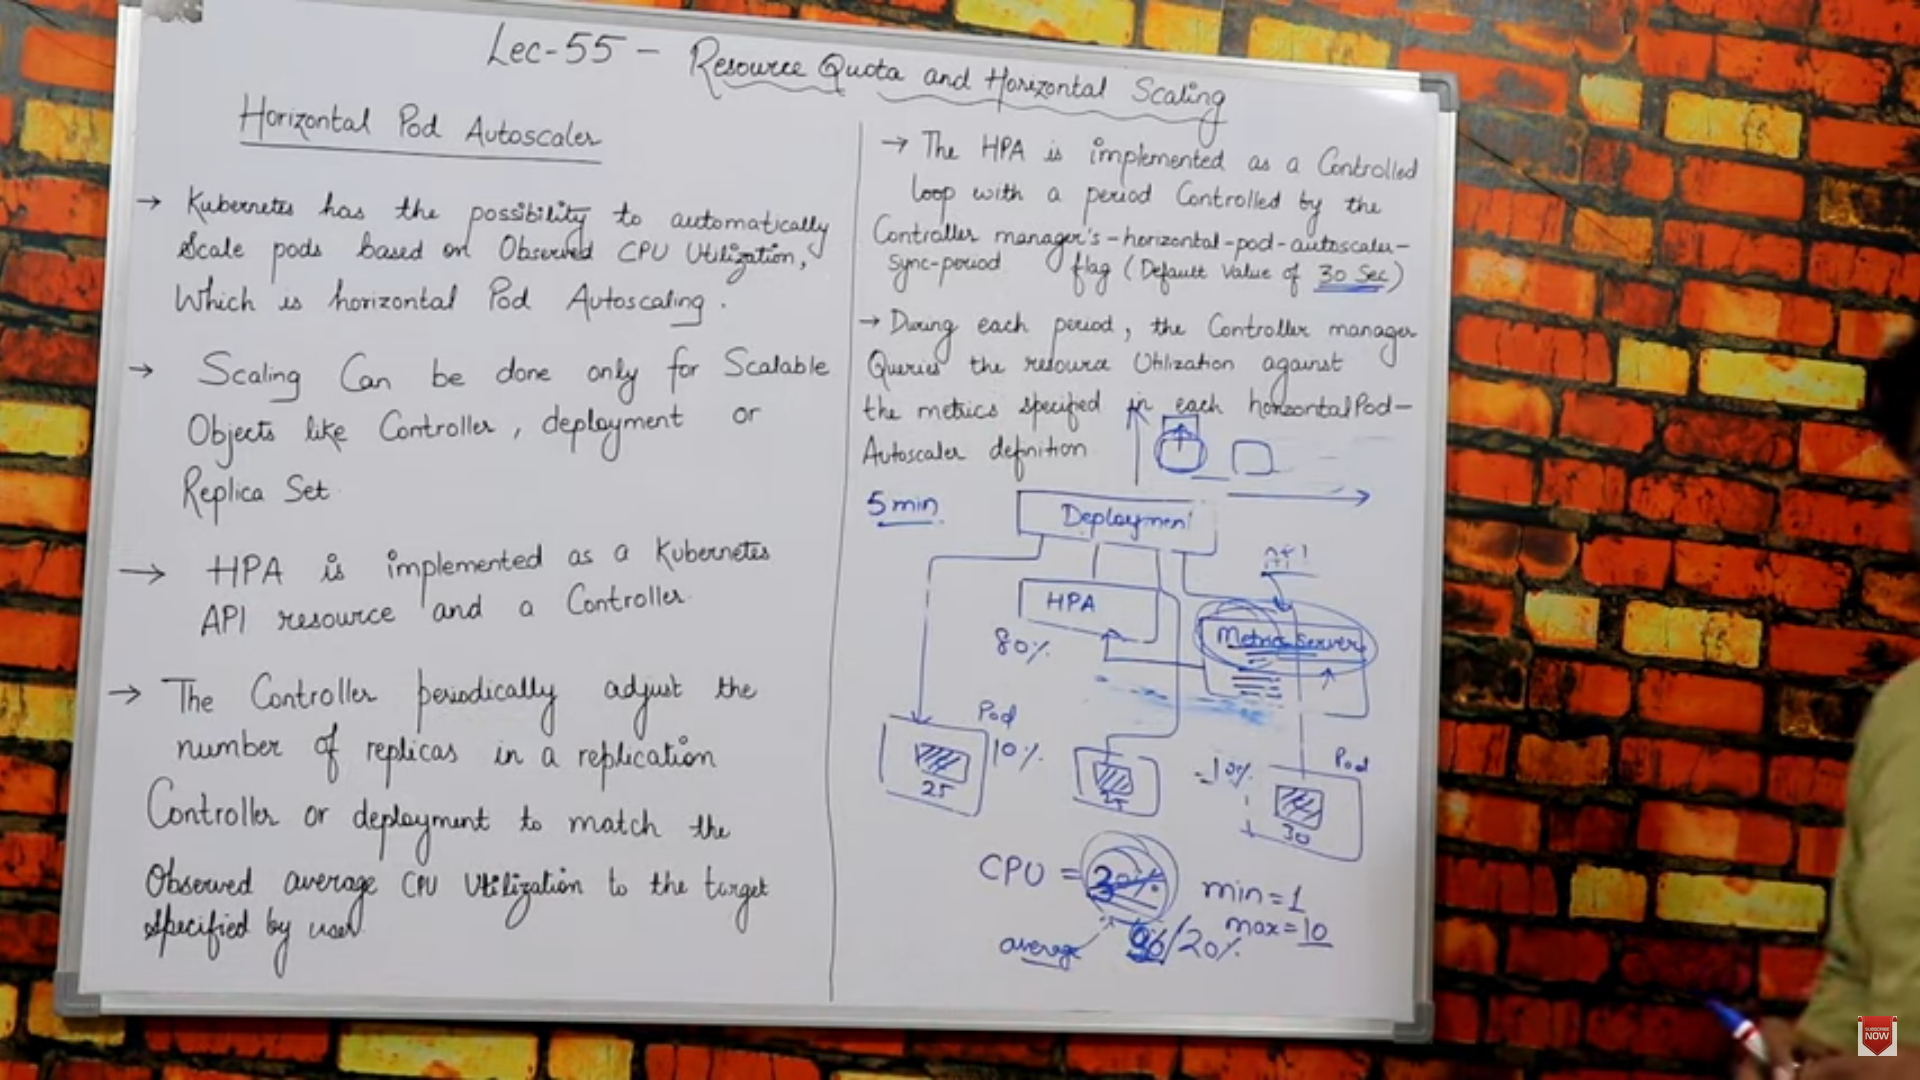 Lec-55 - Resource Quota and Horizontal Scaling
Horizontal Pod Autoscaler
→ Kubernetes has the possibility to automatically
Scale pods based on Observed CPU Utilization,
Which is horizontal Pod Autoscaling.
→ Scaling Can be done only for Scalable
Objects like Controller, deployment or
Replica Set
→ HPA is implemented as a Kubernetes
API resource and a Controller.
→ The Controller periodically adjust the
number of replicas in a replication
Controller or deployment to match the
Observed average CPU Utilization to the target
specified by user.
→ The HPA is implemented as a Controlled
loop with a period Controlled by the
Controller manager's-horizontal-pod-autoscaler-
sync-period flag (Default Value of 30 Sec)
→ During each period, the Controller manager
Queries the resource Utilization against
the metrics specified in each horizontalPod-
Autoscaler definition
5 min
Deployment
HPA
80%
Metric Server
Pod
10%
25
Pod
30
CPU =
min=1
max=10
average
/20%
SUBSCRIBE
NOW